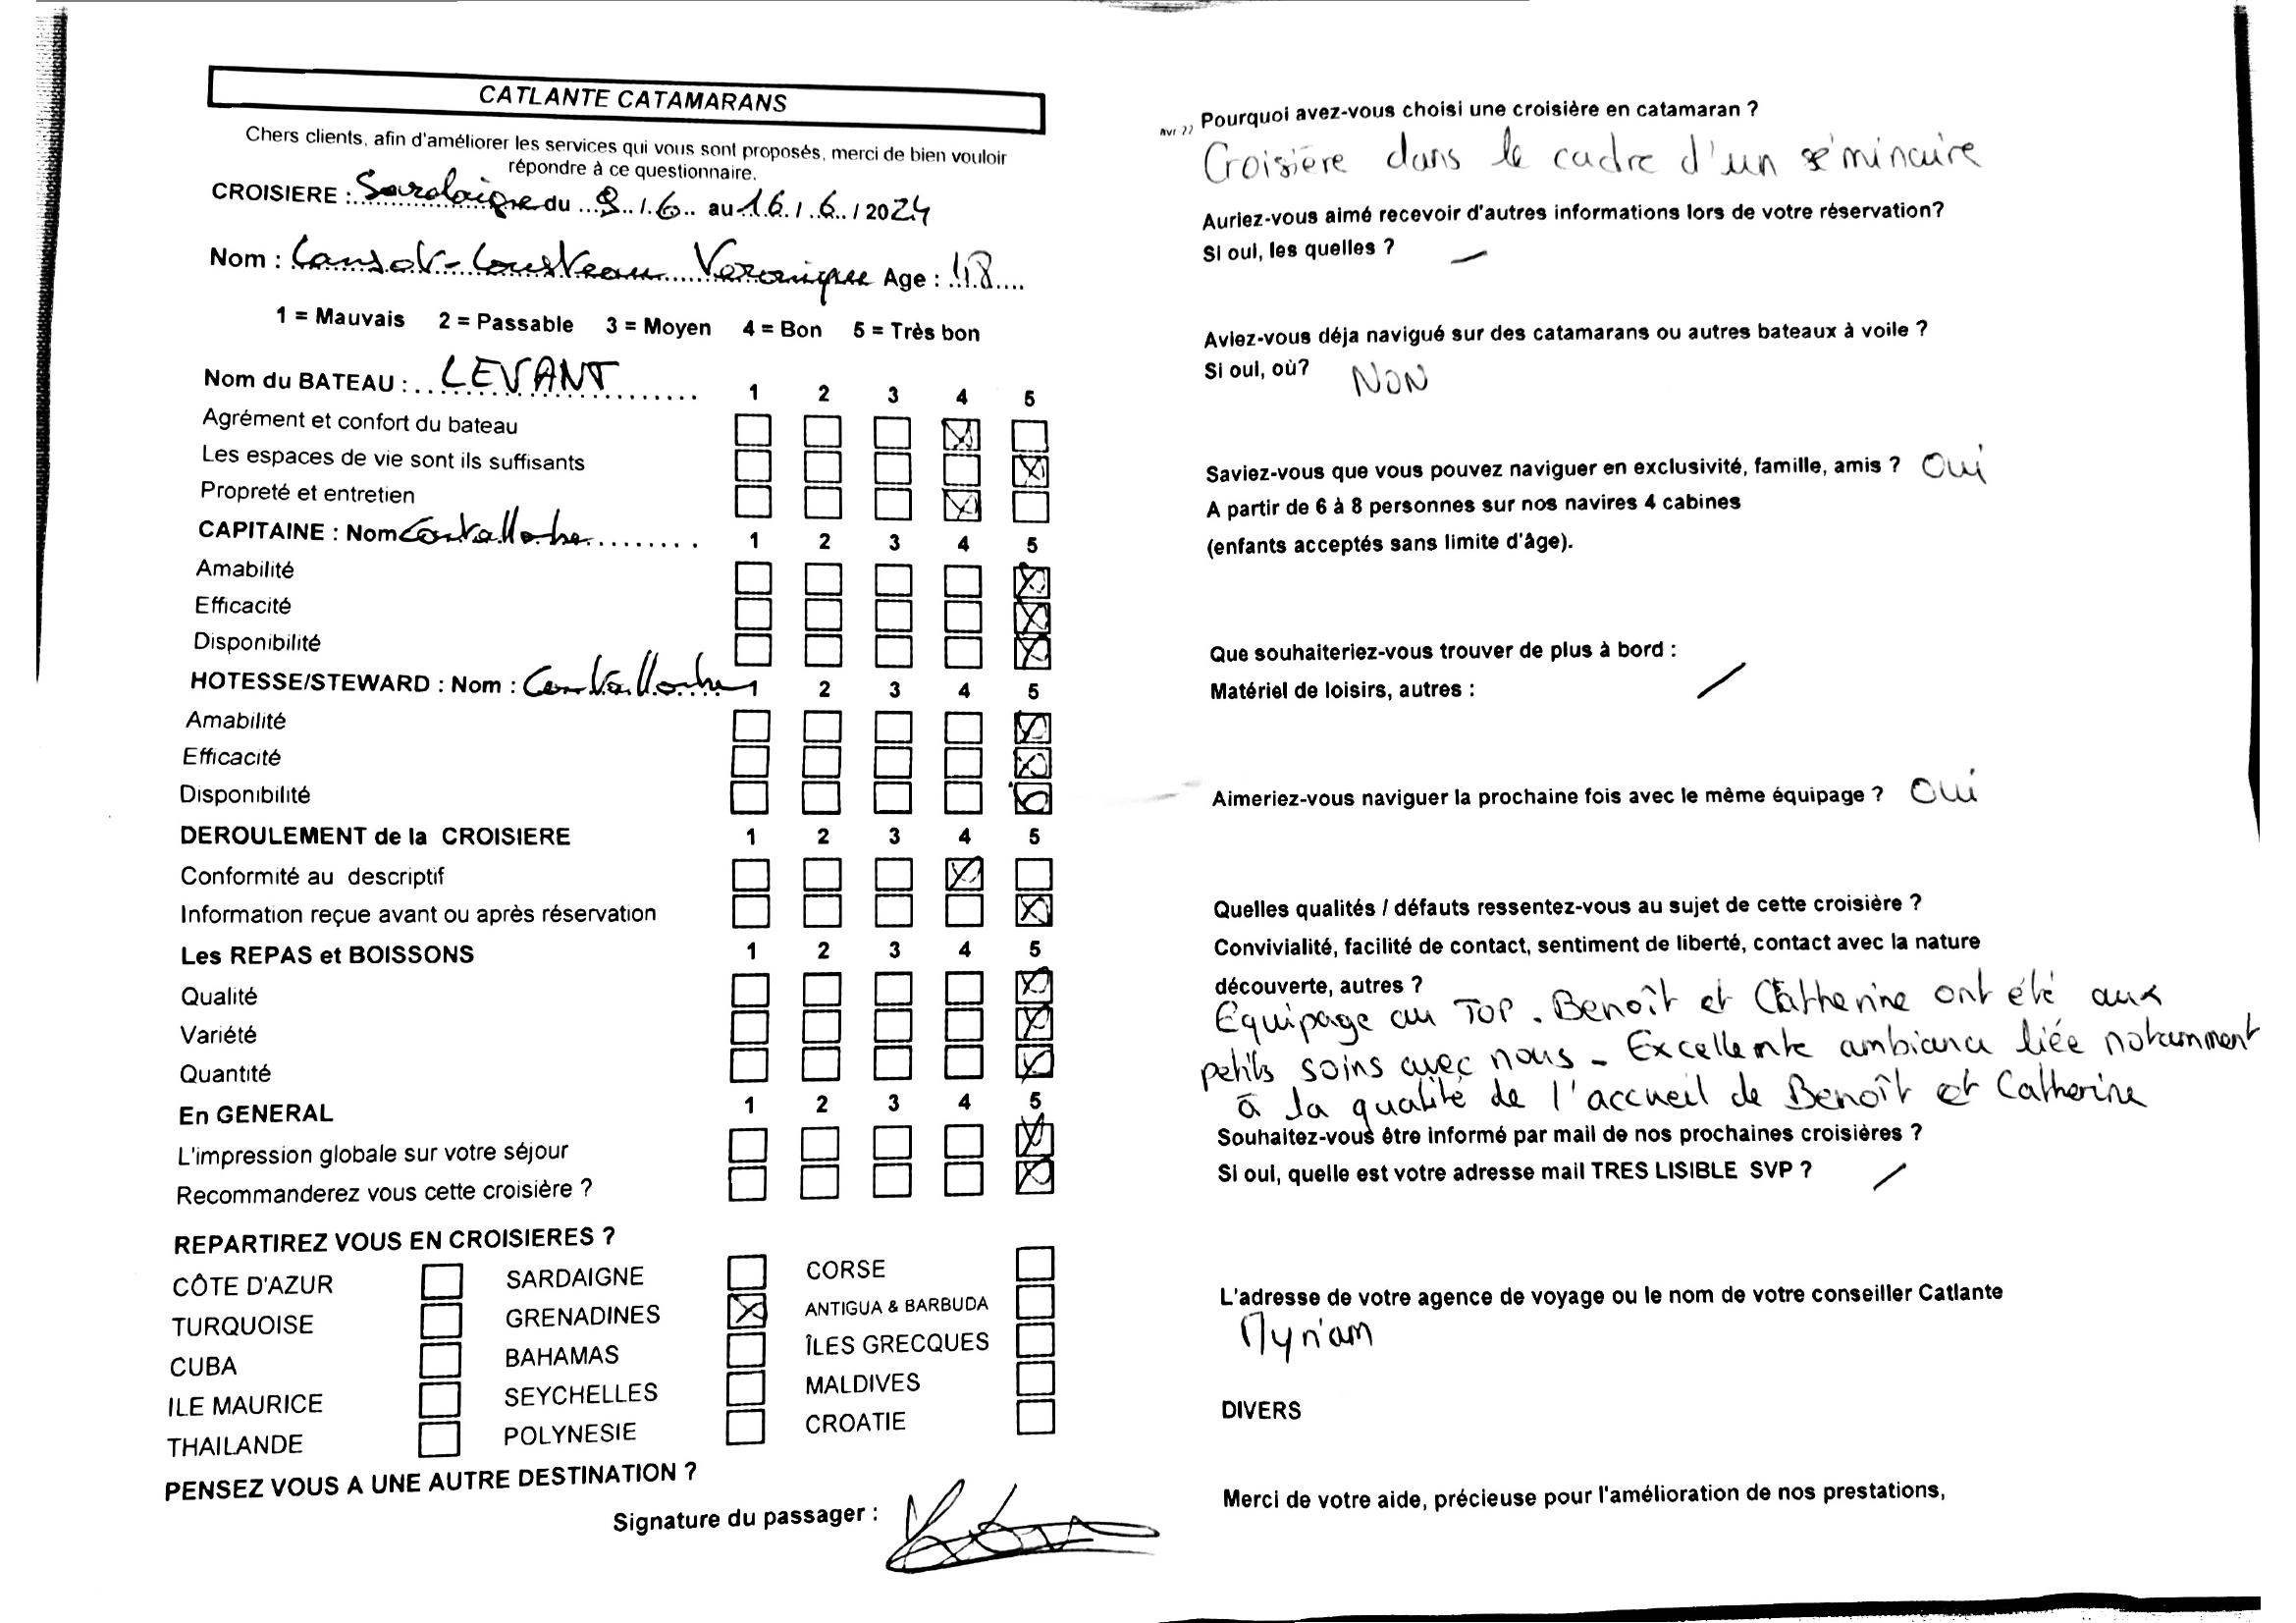 CATLANTE CATAMARANS
Chers clients, afin d'améliorer les services qui vous sont proposés, merci de bien vouloir
répondre à ce questionnaire.
CROISIERE : Sardaigne du 9 / 6 au 16 / 6 / 2024
Nom : Veronique Age : 48
1 = Mauvais 2 = Passable 3 = Moyen 4 = Bon 5 = Très bon
Nom du BATEAU : LEVANT 1 2 3 4 5
Agrément et confort du bateau
Les espaces de vie sont ils suffisants
Propreté et entretien
CAPITAINE : Nom 1 2 3 4 5
Amabilité
Efficacité
Disponibilité
HOTESSE/STEWARD : Nom : 1 2 3 4 5
Amabilité
Efficacité
Disponibilité
DEROULEMENT de la CROISIERE 1 2 3 4 5
Conformité au descriptif
Information reçue avant ou après réservation
Les REPAS et BOISSONS 1 2 3 4 5
Qualité
Variété
Quantité
En GENERAL 1 2 3 4 5
L'impression globale sur votre séjour
Recommanderez vous cette croisière ?
REPARTIREZ VOUS EN CROISIERES ?
CÔTE D'AZUR SARDAIGNE CORSE
TURQUOISE GRENADINES ANTIGUA & BARBUDA
CUBA BAHAMAS ÎLES GRECQUES
ILE MAURICE SEYCHELLES MALDIVES
THAILANDE POLYNESIE CROATIE
PENSEZ VOUS A UNE AUTRE DESTINATION ?
Signature du passager :
Pourquoi avez-vous choisi une croisière en catamaran ?
Croisière dans le cadre d'un séminaire
Auriez-vous aimé recevoir d'autres informations lors de votre réservation?
Si oui, les quelles ? /
Aviez-vous déja navigué sur des catamarans ou autres bateaux à voile ?
Si oui, où? NON
Saviez-vous que vous pouvez naviguer en exclusivité, famille, amis ? Oui
A partir de 6 à 8 personnes sur nos navires 4 cabines
(enfants acceptés sans limite d'âge).
Que souhaiteriez-vous trouver de plus à bord :
Matériel de loisirs, autres : /
Aimeriez-vous naviguer la prochaine fois avec le même équipage ? Oui
Quelles qualités / défauts ressentez-vous au sujet de cette croisière ?
Convivialité, facilité de contact, sentiment de liberté, contact avec la nature
découverte, autres ?
Equipage au TOP. Benoît et Catherine ont été aux
petits soins avec nous - Excellente ambiance liée notamment
à la qualité de l'accueil de Benoît et Catherine
Souhaitez-vous être informé par mail de nos prochaines croisières ?
Si oui, quelle est votre adresse mail TRES LISIBLE SVP ? /
L'adresse de votre agence de voyage ou le nom de votre conseiller Catlante
Myriam
DIVERS
Merci de votre aide, précieuse pour l'amélioration de nos prestations,